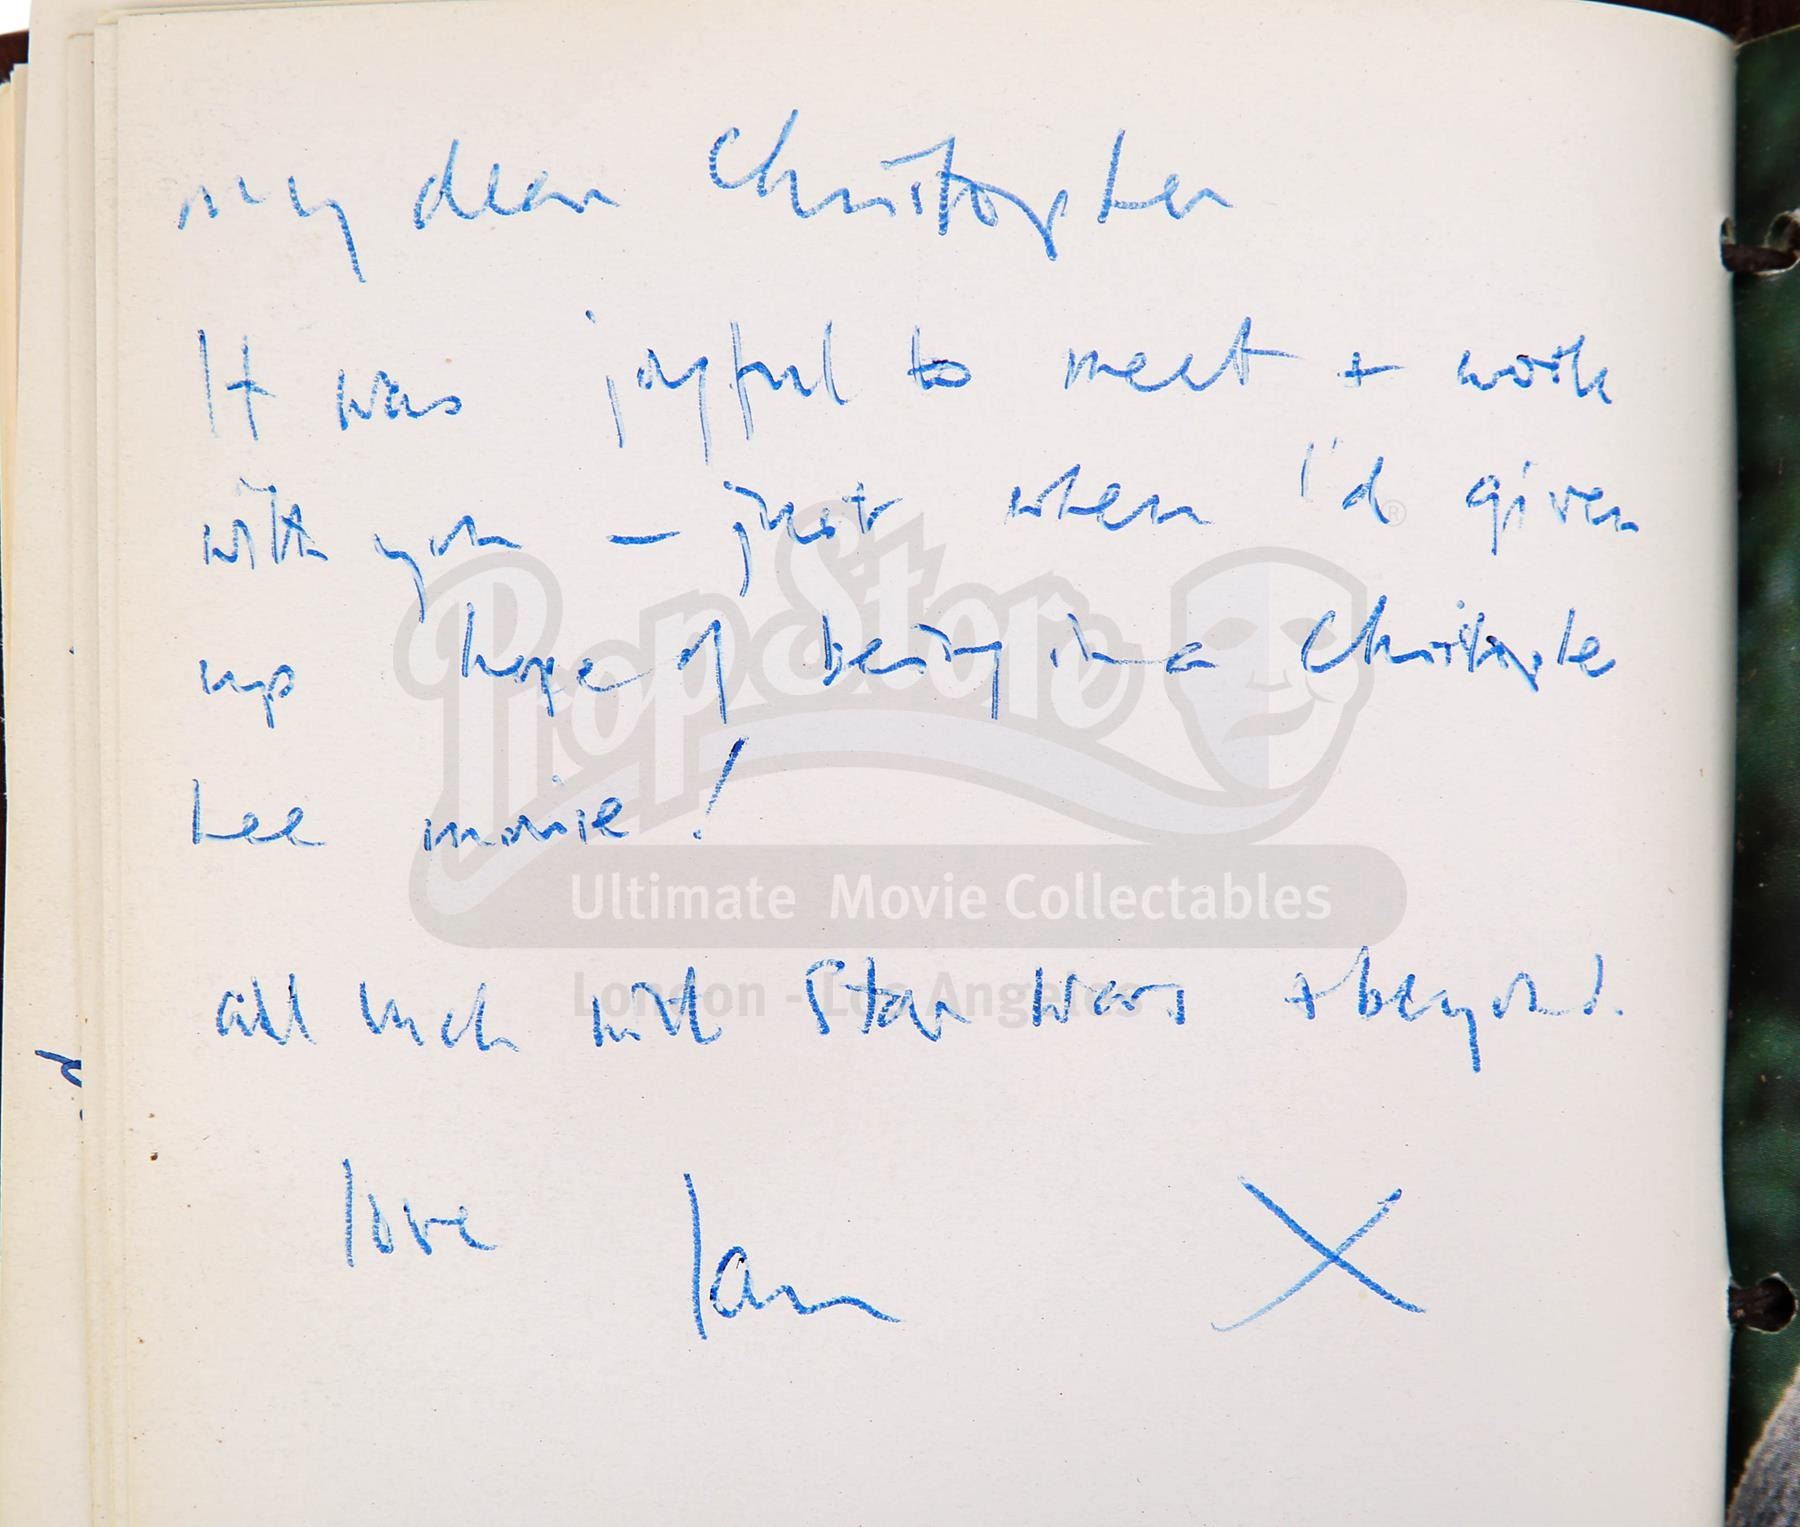 my dear Christopher
It was joyful to meet + work
with you – just when I'd given
up hope of being in a Christopher
Lee movie!
all luck with Star Wars + beyond.
love Ian X
PropStore
®
Ultimate Movie Collectables
London - Los Angeles